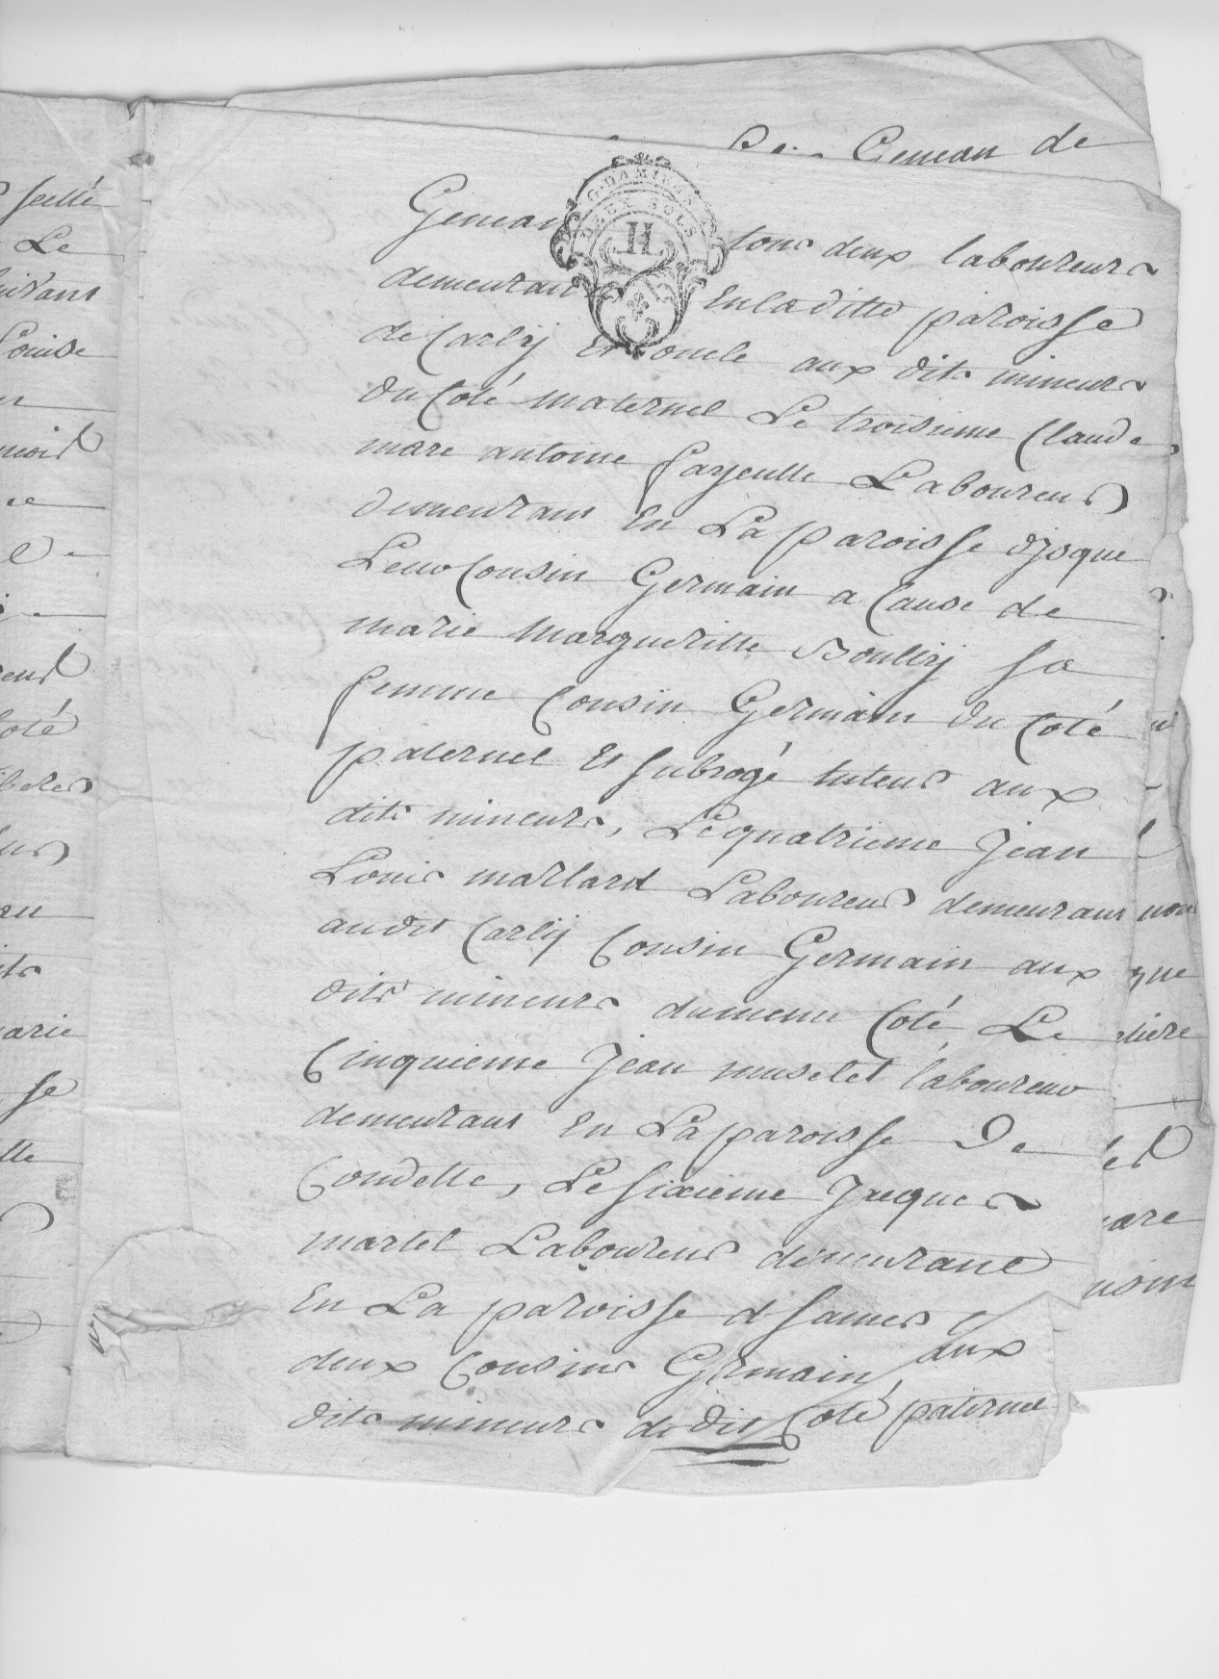 Geneau de
Geneau tous deux laboureurs
demeurant En la ditte paroisse
de Carly Et oncle aux dits mineurs
du Coté maternel Le troisieme Claude
mare antoine fayeulle Laboureur
demeurant En La paroisse d'jsque
Leur Cousin Germain a Cause de
marie margueritte Boulizy sa
femme Cousin Germain du Coté
paternel Et subrogé tuteur aux
dits mineurs, Le quatrieme Jean
Louis mallard Laboureur demeurant
audit Carly Cousin Germain aux
dits mineurs dumeme Coté Le
Cinquieme Jean muselet laboureur
demeurant En La paroisse De
Condette, Le sixieme Jacques
martel Laboureur demeurant
En La paroisse d samer
deux Cousins Germain aux
dits mineurs du dit Coté paternel
G. D'AMIENS
DEUX SOLS
H
scellé
Le
Louise
Coté
arie
se
lle
que
mare